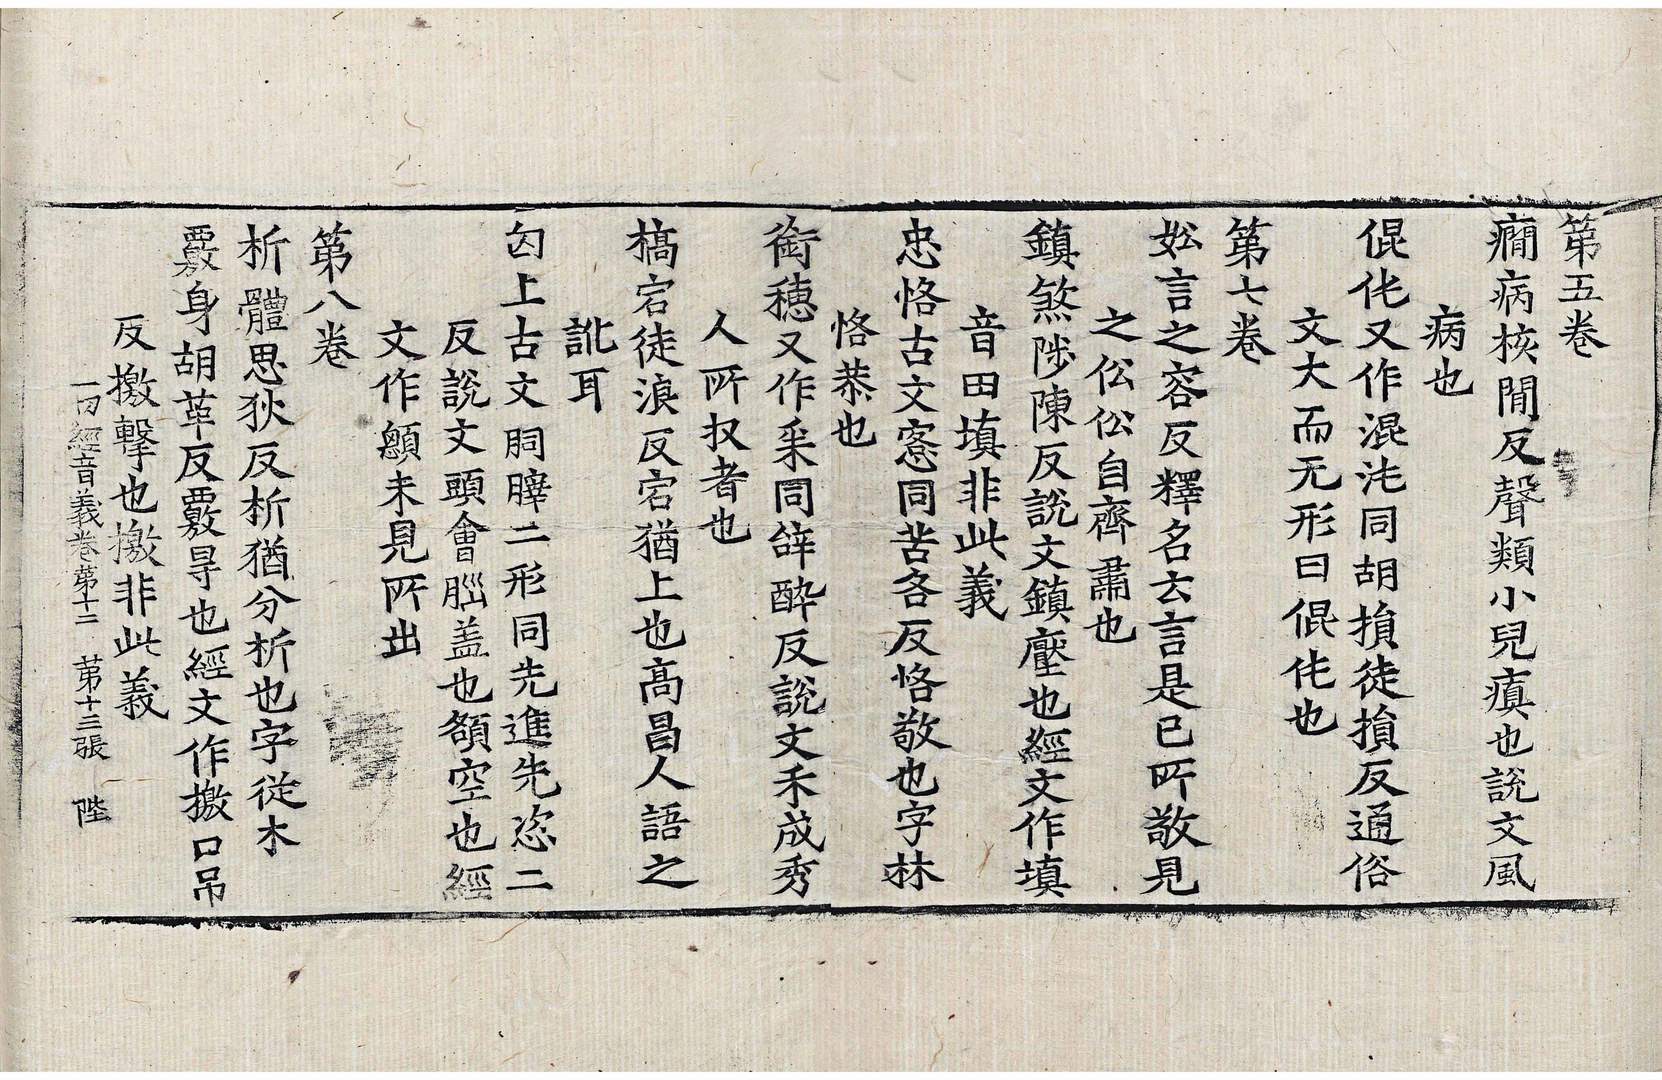 第五卷
癎病核閒反聲類小兒瘨也說文風
病也
倱伅又作混沌同胡損徒損反通俗
文大而无形曰倱伅也
第七卷
妐言之容反釋名云言是已所敬見
之伀伀自齊肅也
鎮煞陟陳反說文鎮壓也經文作填
音田填非此義
忠恪古文愙同苦各反恪敬也字林
恪恭也
銜穗又作采同辝醉反說文禾成秀
人所収者也
搞宕徒浪反宕猶上也高昌人語之
訛耳
囟上古文䏰膟二形同先進先恣二
反說文頭會𦛁盖也頟空也經
文作顖未見所出
第八卷
析體思狄反析猶分析也字從木
覈身胡革反覈㝵也經文作撽口吊
反撽擊也撽非此義
一切經音義卷第十三　第十三張　陛